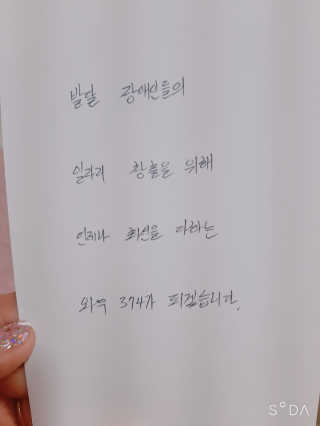 발달 장애인들의
일자리 창출을 위해
언제나 최선을 다하는
374가 되겠습니다.
SODA